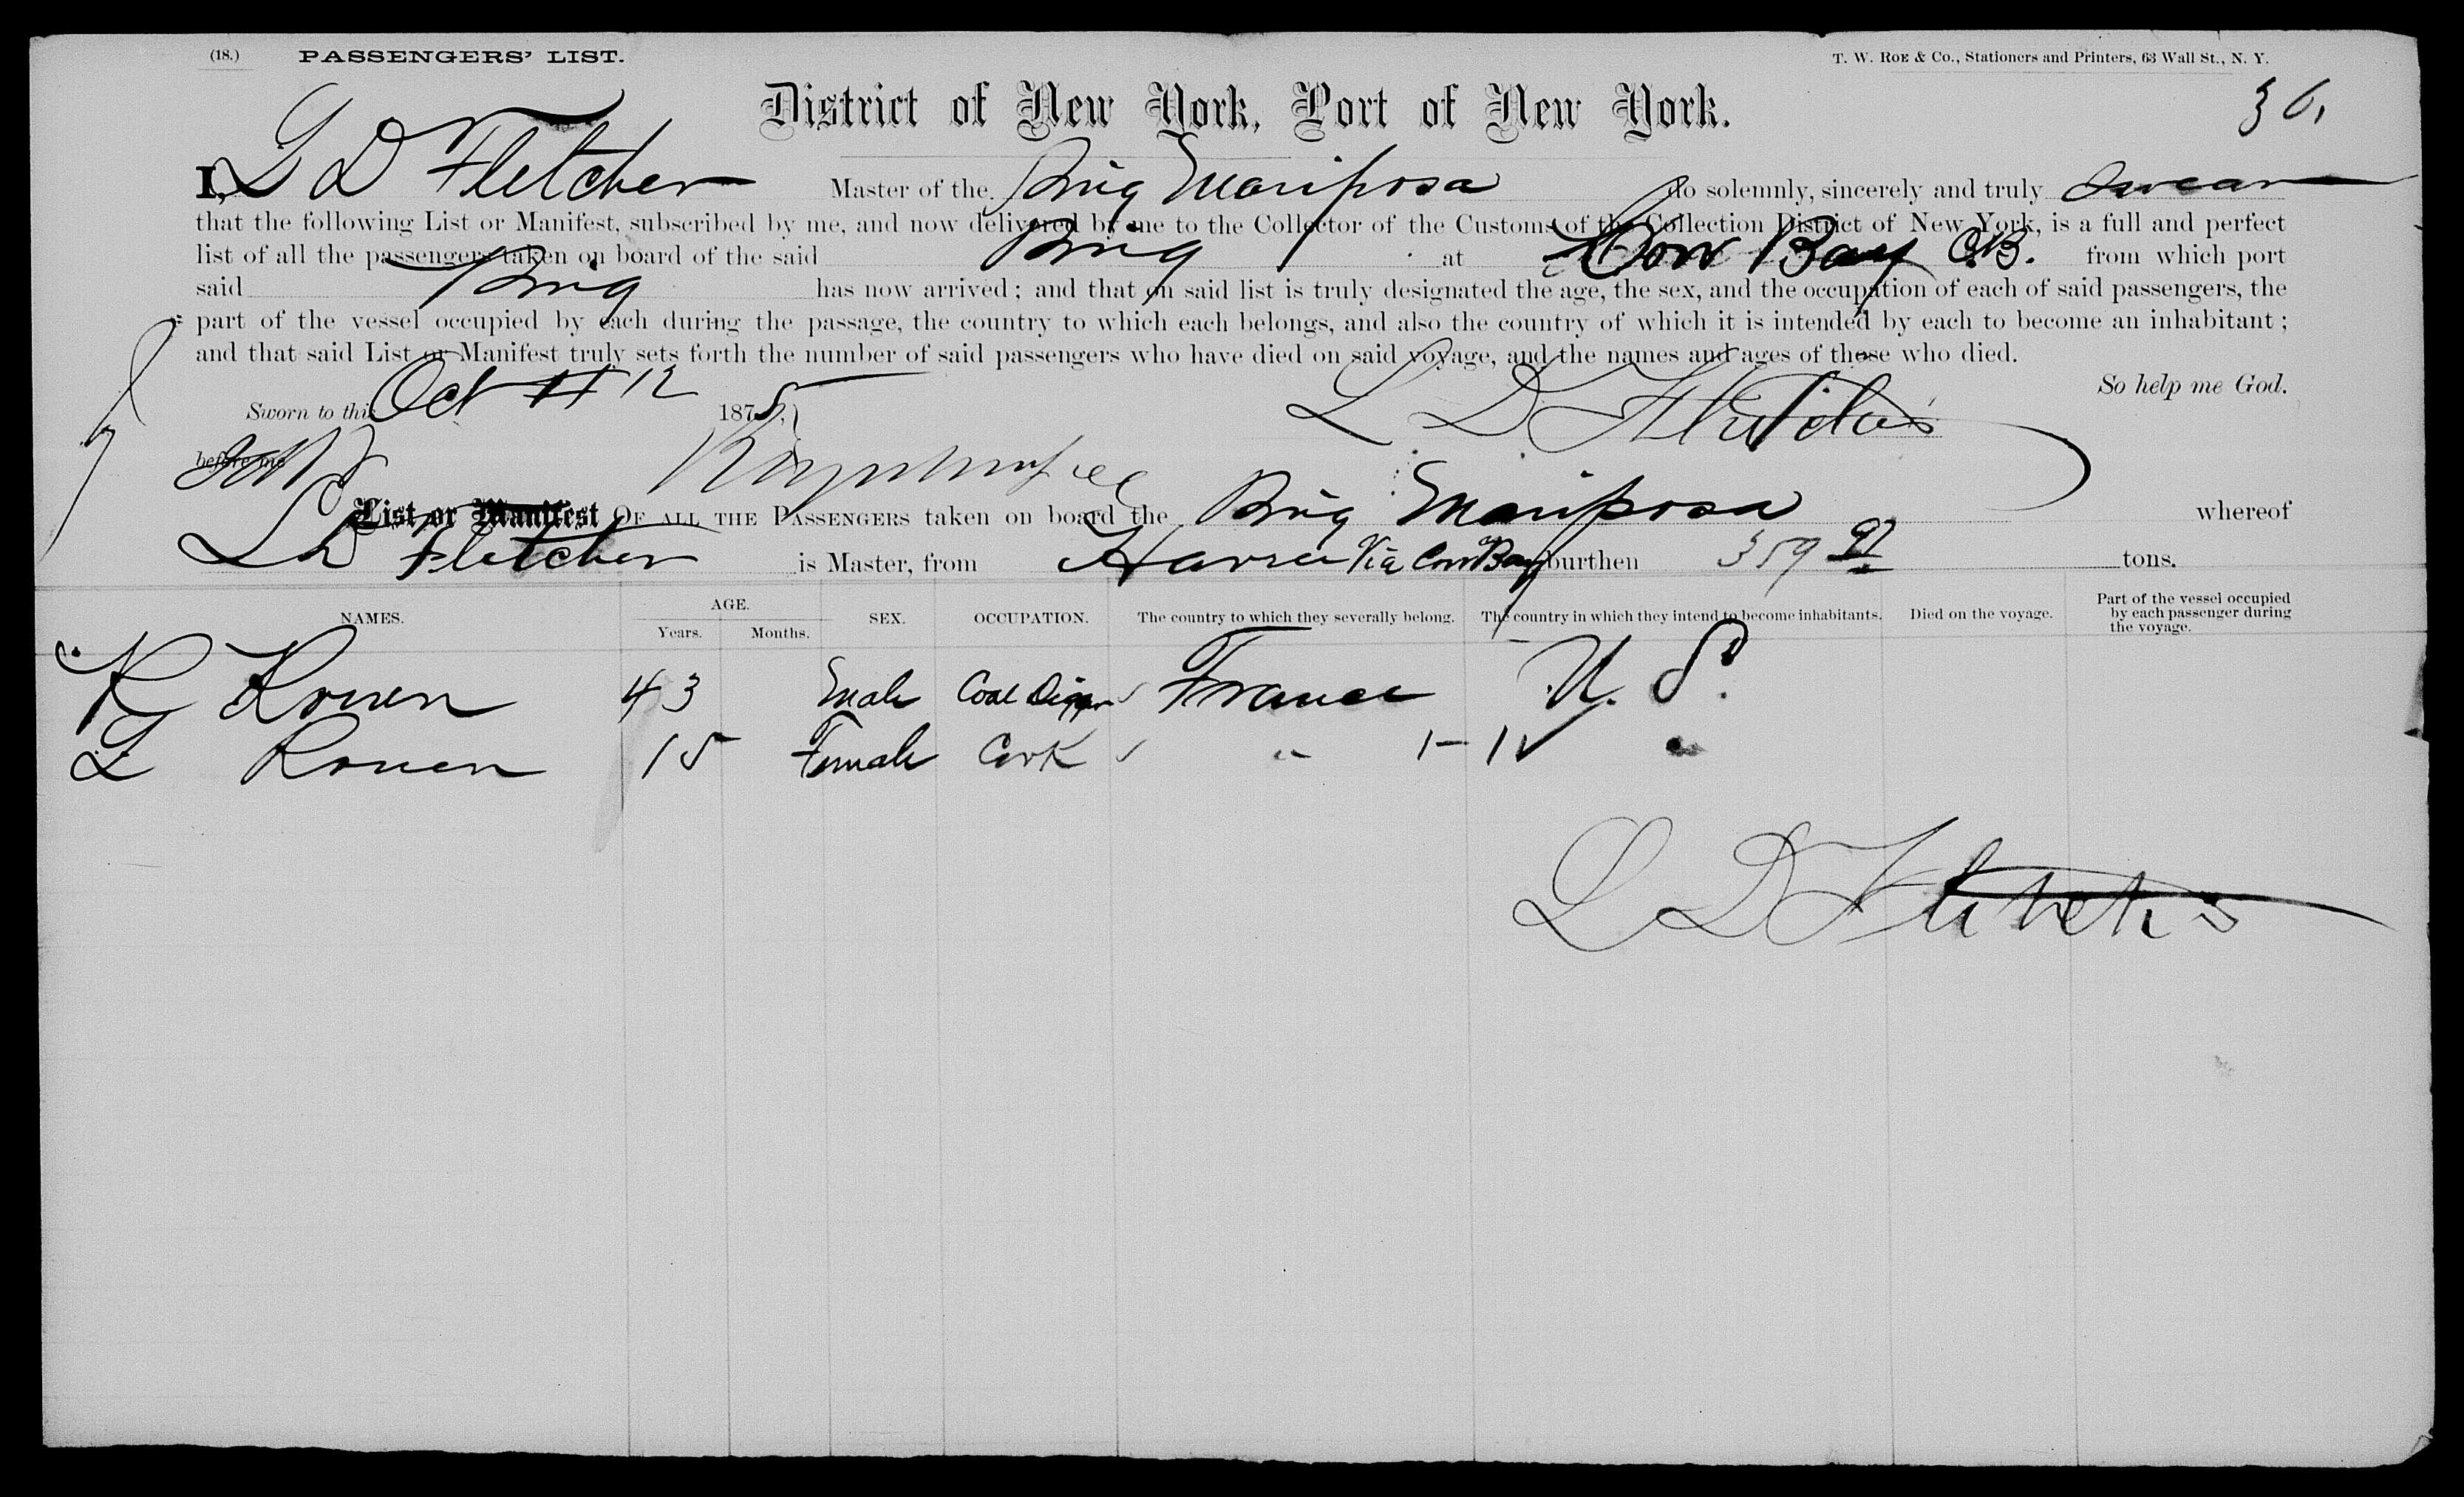 (18.) PASSENGERS' LIST. T. W. ROE & Co., Stationers and Printers, 63 Wall St., N. Y.
District of New York, Port of New York.
36,
I, L D Fletcher Master of the Brig Mariposa do solemnly, sincerely and truly swear
that the following List or Manifest, subscribed by me, and now delivered by me to the Collector of the Customs of the Collection District of New York, is a full and perfect
list of all the passengers taken on board of the said Brig at Cow Bay C.B. from which port
said Brig has now arrived; and that on said list is truly designated the age, the sex, and the occupation of each of said passengers, the
part of the vessel occupied by each during the passage, the country to which each belongs, and also the country of which it is intended by each to become an inhabitant;
and that said List or Manifest truly sets forth the number of said passengers who have died on said voyage, and the names and ages of those who died.
So help me God.
Sworn to this Oct 12 1875, L D Fletcher
before me
List or Manifest OF ALL THE PASSENGERS taken on board the Brig Mariposa whereof
L D Fletcher is Master, from Havre Via Cow Bay burthen 359 97 tons.
NAMES. AGE. Years. Months. SEX. OCCUPATION. The country to which they severally belong. The country in which they intend to become inhabitants. Died on the voyage. Part of the vessel occupied by each passenger during the voyage.
K Rouen 43 Male Coal Digger France U. S.
L Rouen 15 Female Cook " 1-1 "
L D Fletcher